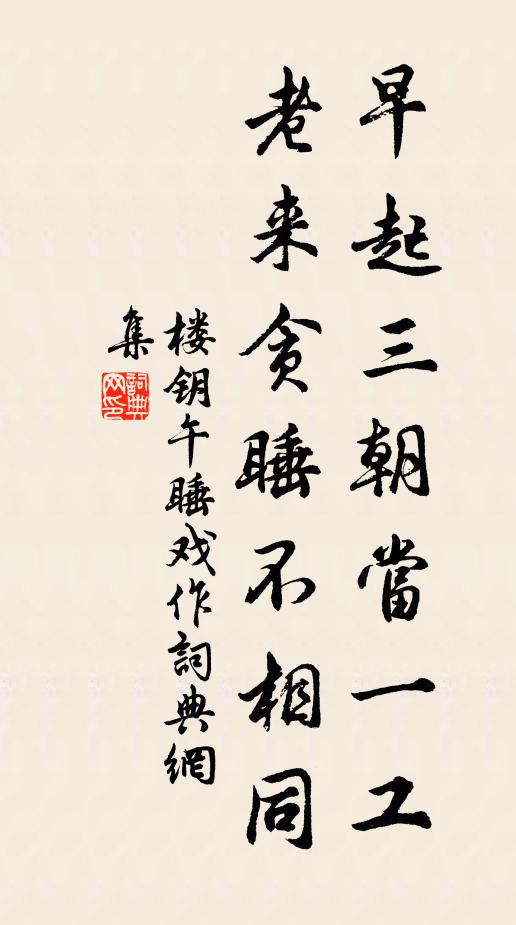 早起三朝當一工
老来贪睡不相同
楼钥午睡戏作詞典網
集
詞典
网印